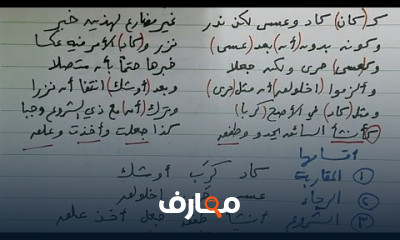 كـ(كان) كاد وعسى لكن ندر غير مضارع لهذين خبر
وكونه بدون (أن) بعد (عسى) نزر و(كاد) الأمر فيه عكسا
وكـ(عسى) حرى ولكن جعلا خبرها حتما بأن متصلا
وألزموا (اخلولق) أن مثل (حرى) وبعد (أوشك) انتفا أن نزرا
ومثل (كاد) في الأصح (كربا) وترك (أن) مع ذي الشروع وجبا
كأنشأ السائق يحدو وطفق كذا جعلت وأخذت وعلق
أقسامها
① المقاربة كاد كَرَبَ أوشك
② الرجاء عسى اخلولق
معارف
③ الشروع أنشأ طفق جعل أخذ علق